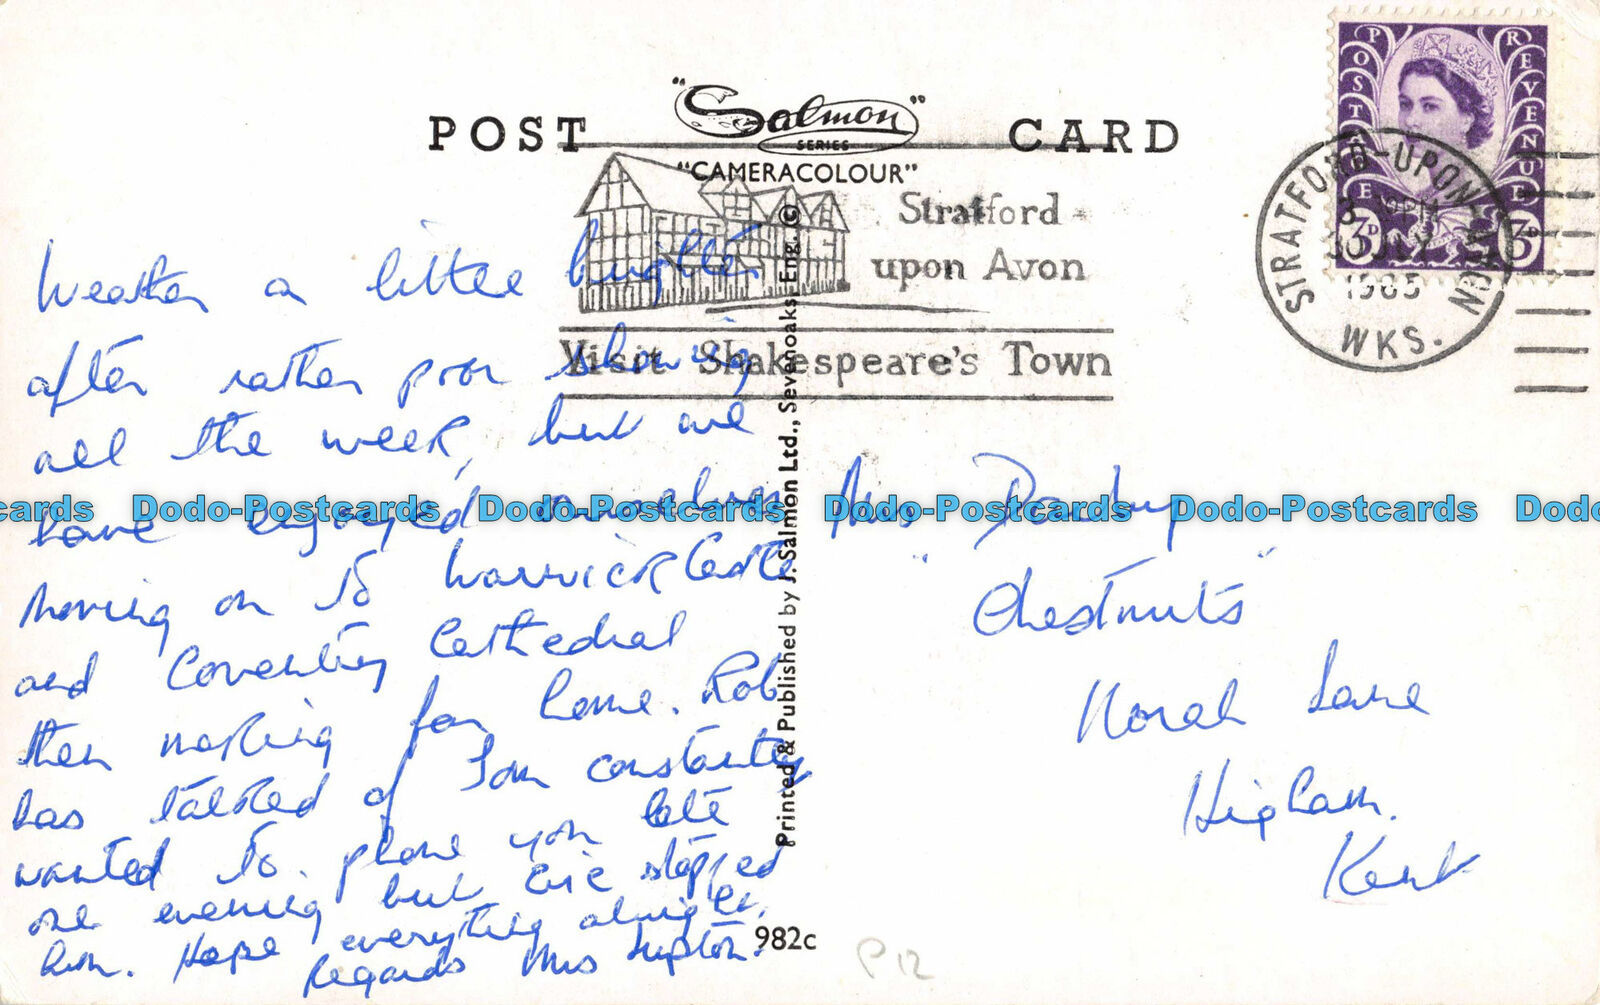 POST CARD
"Salmon"
SERIES
"CAMERACOLOUR"
Stratford
upon Avon
Visit Shakespeare's Town
POSTAGE REVENUE
3D 3D
STRATFORD-UPON-AVON
JLY
1965
WKS.
Weather a little brighter
after rather poor showing
all the week, but we
have enjoyed ourselves
moving on to Warwick Castle
and Coventry Cathedral
then making for home. Rob
has talked of Tom constantly
wanted to phone you late
one evening but Eric stopped
him. Hope everything alright.
Regards Mrs
Danby
"Chestnuts"
Norah Lane
Higham.
Kent
Printed & Published by J. Salmon Ltd., Sevenoaks, Eng. ©
982c
P12
cards Dodo-Postcards Dodo-Postcards Dodo-Postcards Dodo-Postcards Dodo